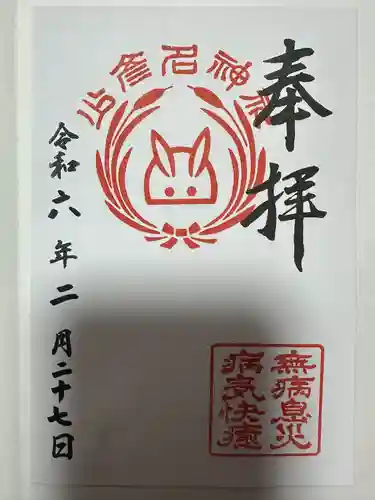 奉拝
少彦名神社
無病息災
病気快癒
令和六年二月二十七日